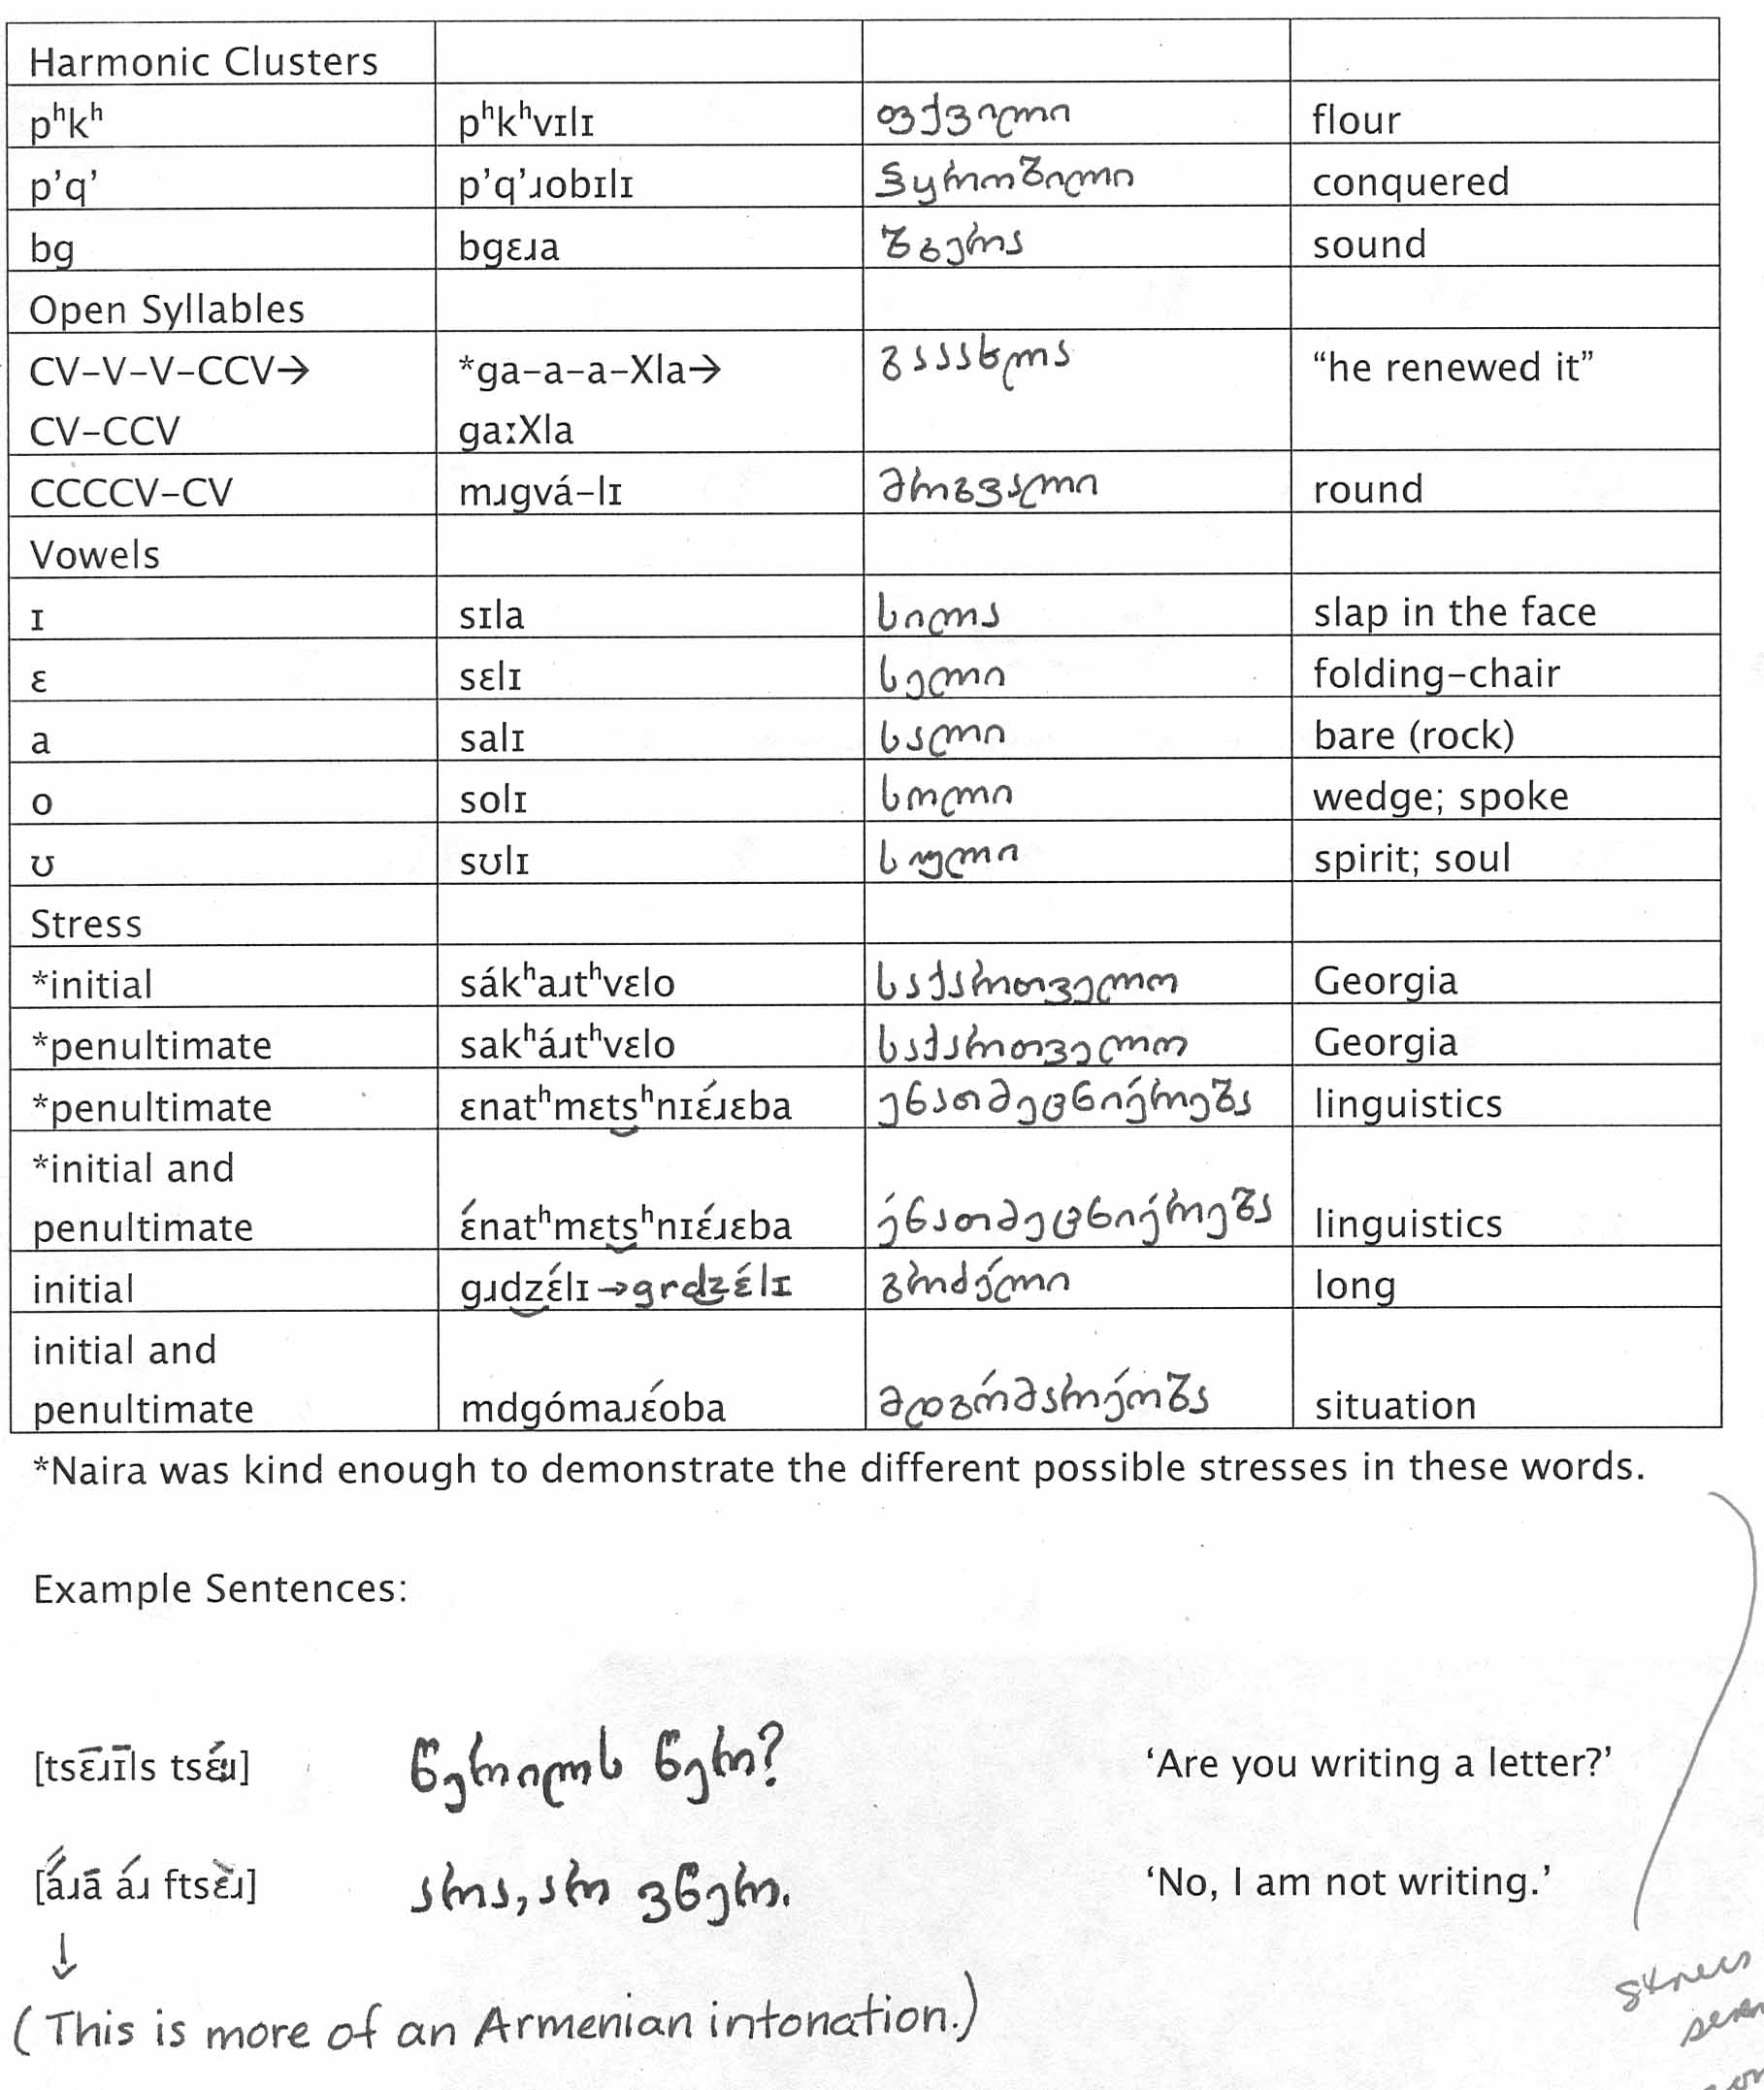 Harmonic Clusters
pʰkʰ pʰkʰvɪlɪ ფქვილი flour
p’q’ p’q’ɹobɪlɪ პყრობილი conquered
bg bgɛɹa ბგერა sound
Open Syllables
CV–V–V–CCV→ *ga–a–a–Xla→ გააახლა “he renewed it”
CV–CCV gaːXla
CCCCV–CV mɹgvá–lɪ მრგვალი round
Vowels
ɪ sɪla სილა slap in the face
ɛ sɛlɪ სელი folding–chair
a salɪ სალი bare (rock)
o solɪ სოლი wedge; spoke
ʊ sʊlɪ სული spirit; soul
Stress
*initial sákʰaɹtʰvɛlo საქართველო Georgia
*penultimate sakʰáɹtʰvɛlo საქართველო Georgia
*penultimate ɛnatʰmɛt͜sʰnɪɛ́ɹɛba ენათმეცნიე́რება linguistics
*initial and
penultimate ɛ́natʰmɛt͜sʰnɪɛ́ɹɛba ე́ნათმეცნიე́რება linguistics
initial gɹd͜zɛ́lɪ→grd͜zɛ́lɪ გრძე́ლი long
initial and
penultimate mdgómaɹɛ́oba მდგო́მარე́ობა situation
*Naira was kind enough to demonstrate the different possible stresses in these words.
Example Sentences:
[tsɛ̄ɹɪ̄ls tsɛ́ɹɪ] წერილს წერ? ‘Are you writing a letter?’
[a̋ɹā áɹ ftsɛ̏ɹ] არა, არ ვწერ. ‘No, I am not writing.’
↓
(This is more of an Armenian intonation.)
stress